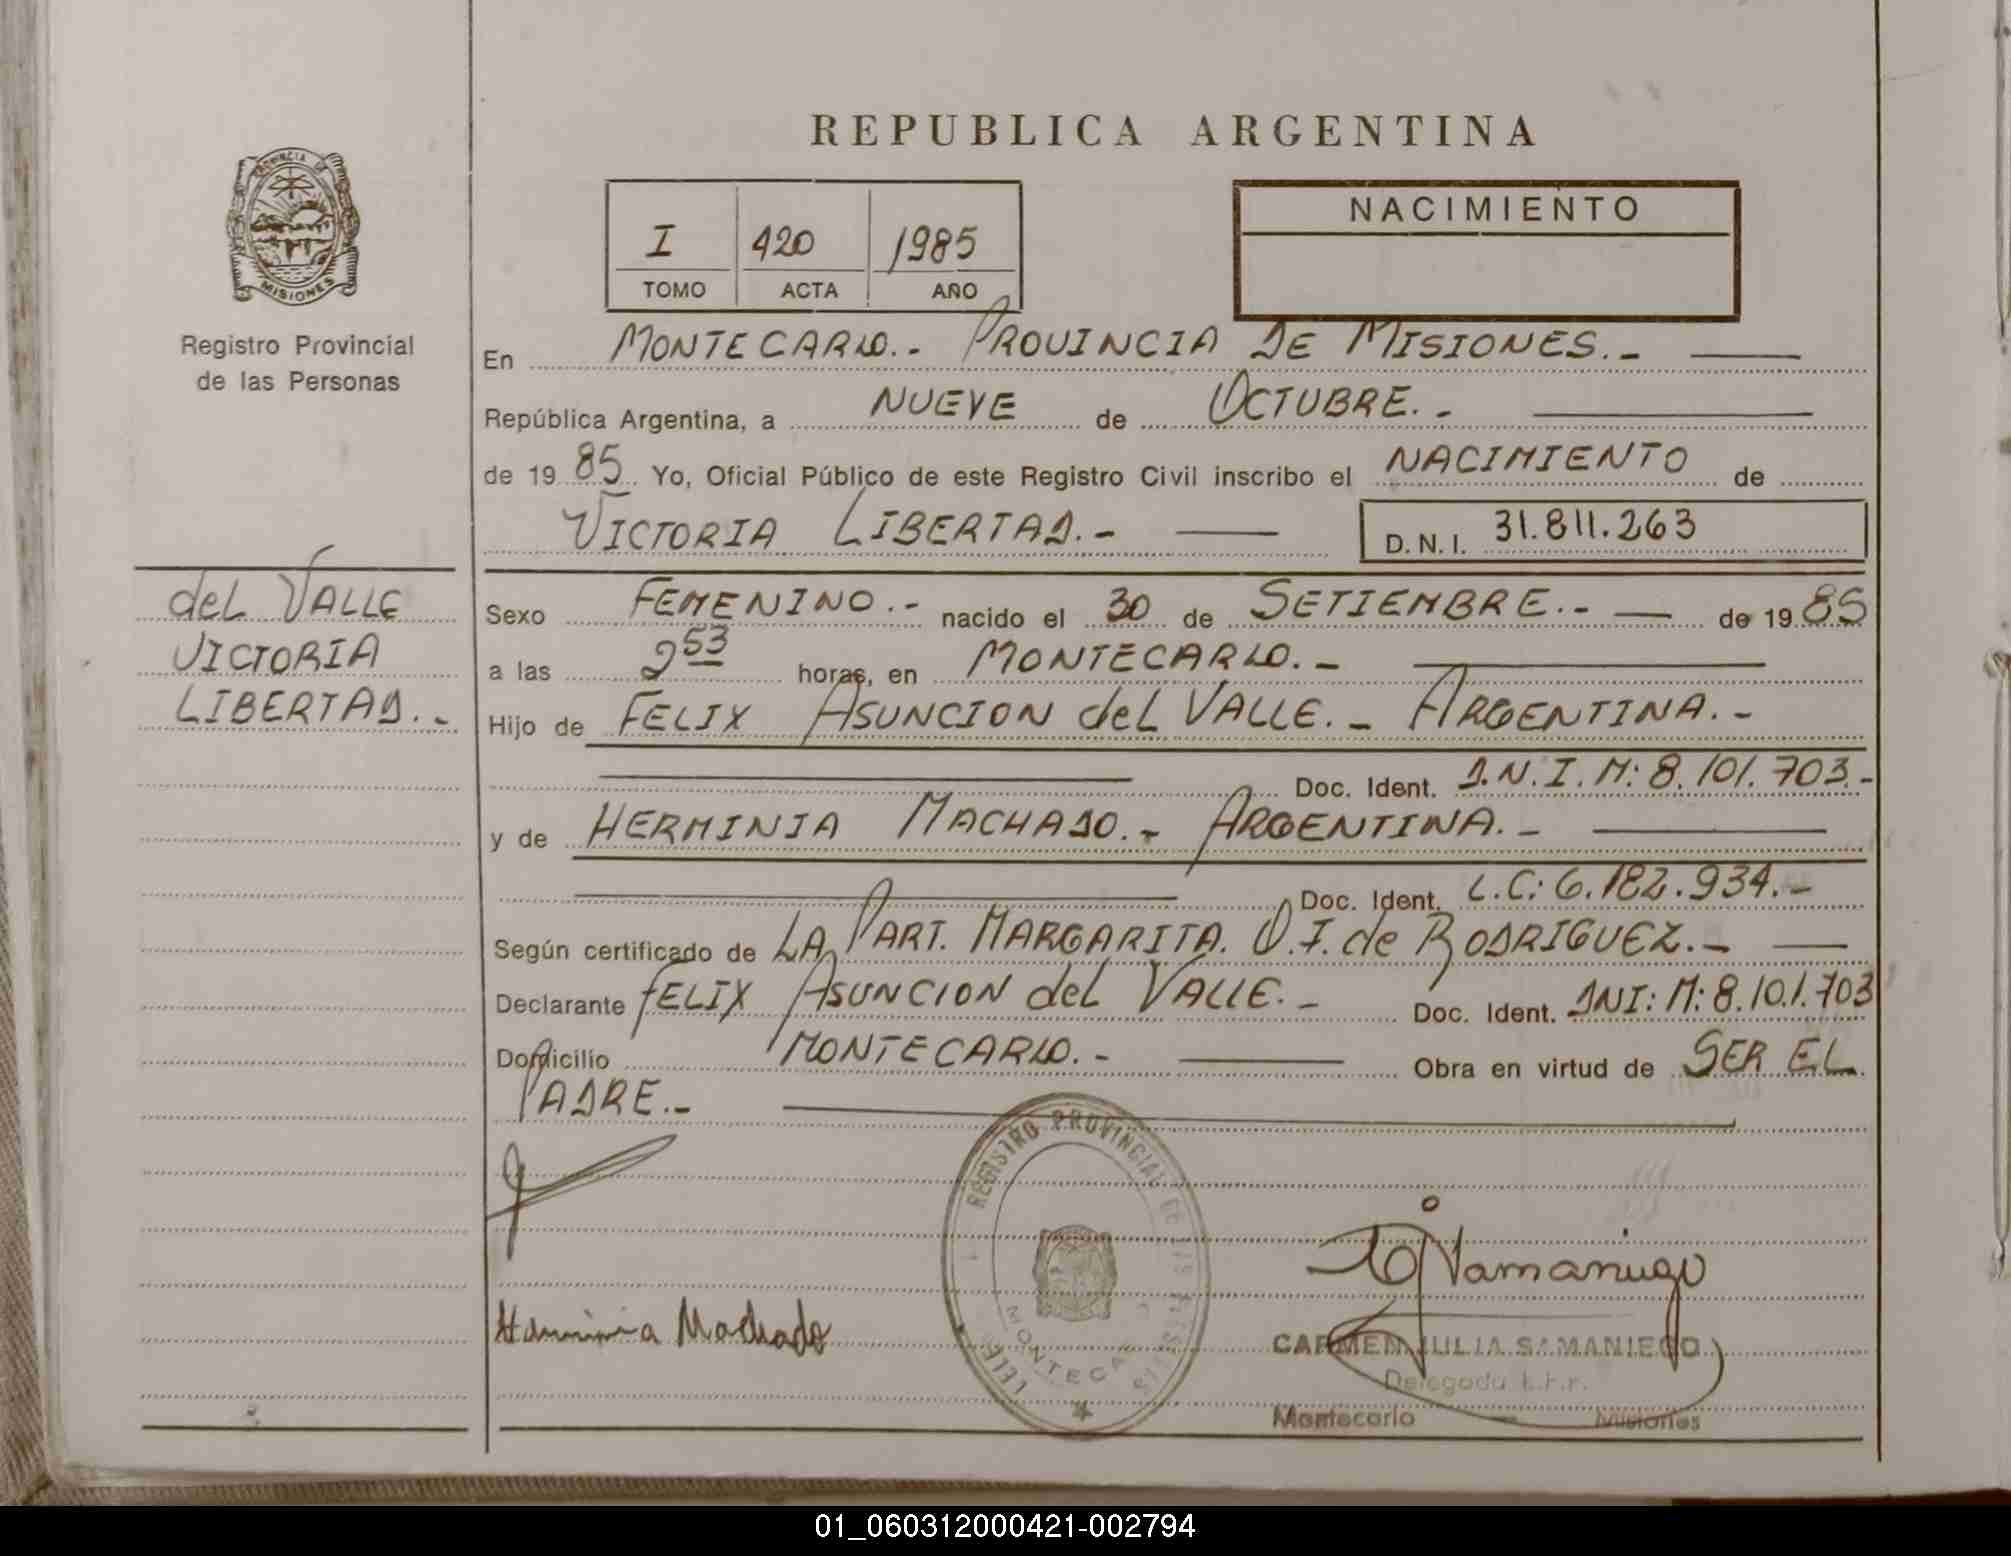 REPUBLICA ARGENTINA
PROVINCIA DE
MISIONES
Registro Provincial
de las Personas
I 420 1985
TOMO ACTA AÑO
NACIMIENTO
En MONTECARLO.- PROVINCIA DE MISIONES.-
República Argentina, a NUEVE de OCTUBRE.-
de 1985 Yo, Oficial Público de este Registro Civil inscribo el NACIMIENTO de
VICTORIA LIBERTAD.- D.N.I. 31.811.263
del VALLE
VICTORIA
LIBERTAD.-
Sexo FEMENINO.- nacido el 30 de SETIEMBRE.- de 1985
a las 2 53 horas, en MONTECARLO.-
Hijo de FELIX ASUNCION del VALLE.- ARGENTINA.-
Doc. Ident. D.N.I.M: 8.101.703.-
y de HERMINIA MACHADO.- ARGENTINA.-
Doc. Ident. L.C: 6.182.934.-
Según certificado de LA PART. MARGARITA. O.F. de RODRIGUEZ.-
Declarante FELIX ASUNCION del VALLE.- Doc. Ident. DNI: M: 8.101.703
Domicilio MONTECARLO.- Obra en virtud de SER EL
PADRE.-
REGISTRO PROVINCIAL DE LAS PERSONAS
Herminia Machado
CARMEN JULIA SAMANIEGO
Delegada
Montecarlo - Misiones
01_060312000421-002794